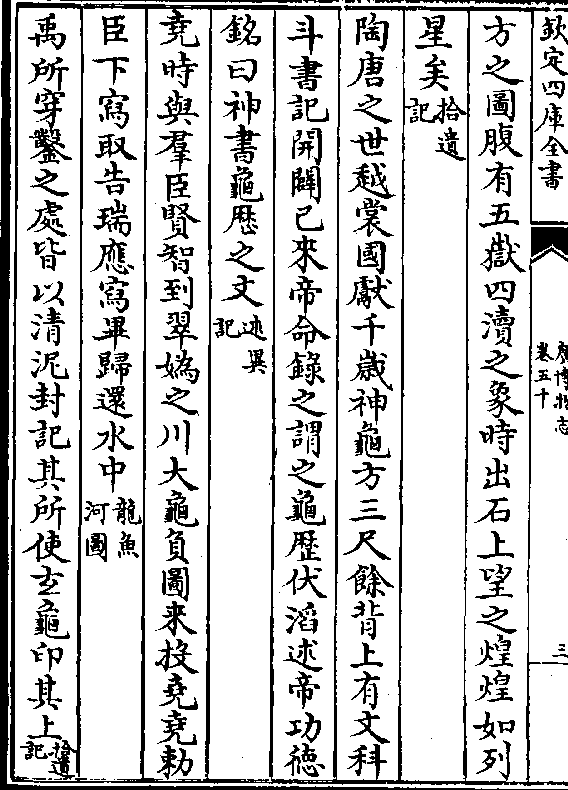 欽定四庫全書
廣博物志
卷五十
三
方之圖腹有五嶽四瀆之象時出石上望之煌煌如列
星矣拾遺記
陶唐之世越裳國獻千歳神龜方三尺餘背上有文科
斗書記開闢已來帝命錄之謂之龜歴伏滔述帝功徳
銘曰神書龜歴之文述異記
堯時與羣臣賢智到翠嬀之川大龜負圖来投堯堯勅
臣下寫取告瑞應寫畢歸還水中龍魚河圖
禹所穿鑿之處皆以清泥封記其所使玄龜印其上拾遺記